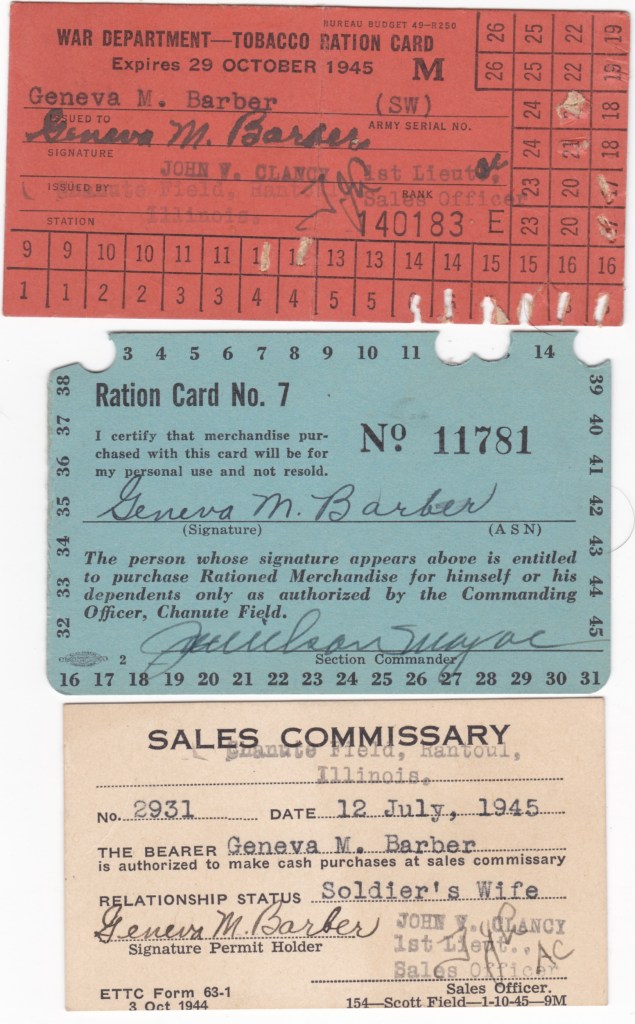 BUREAU BUDGET 49-R250
WAR DEPARTMENT—TOBACCO RATION CARD
Expires 29 OCTOBER 1945 M
Geneva M. Barber (SW)
ISSUED TO ARMY SERIAL NO.
Geneva M. Barber
SIGNATURE
JOHN V. CLANCY 1st Lieut.,
ISSUED BY RANK
Chanute Field, Rantoul Sales Officer
Illinois.
STATION
140183 E
26 25 22 19
26 25 22 19
24 21 18
24 21 18
23 20 17
23 20 17
9 9 10 10 11 12 13 13 14 14 15 15 16 16
1 1 2 2 3 3 4 4 5 5
3 4 5 6 7 8 9 10 11 14
38 37 36 35 34 33 32
39 40 41 42 43 44 45
Ration Card No. 7
I certify that merchandise pur-
chased with this card will be for
my personal use and not resold.
No 11781
Geneva M. Barber
(Signature) (ASN)
The person whose signature appears above is entitled
to purchase Rationed Merchandise for himself or his
dependents only as authorized by the Commanding
Officer, Chanute Field.
2 Section Commander
16 17 18 19 20 21 22 23 24 25 26 27 28 29 30 31
SALES COMMISSARY
Chanute Field, Rantoul,
Illinois.
No. 2931 DATE 12 July, 1945
THE BEARER Geneva M. Barber
is authorized to make cash purchases at sales commissary
RELATIONSHIP STATUS Soldier's Wife
Geneva M. Barber JOHN V. CLANCY
Signature Permit Holder 1st Lieut., AC
Sales Officer
ETTC Form 63-1 Sales Officer.
3 Oct 1944 154—Scott Field—1-10-45—9M